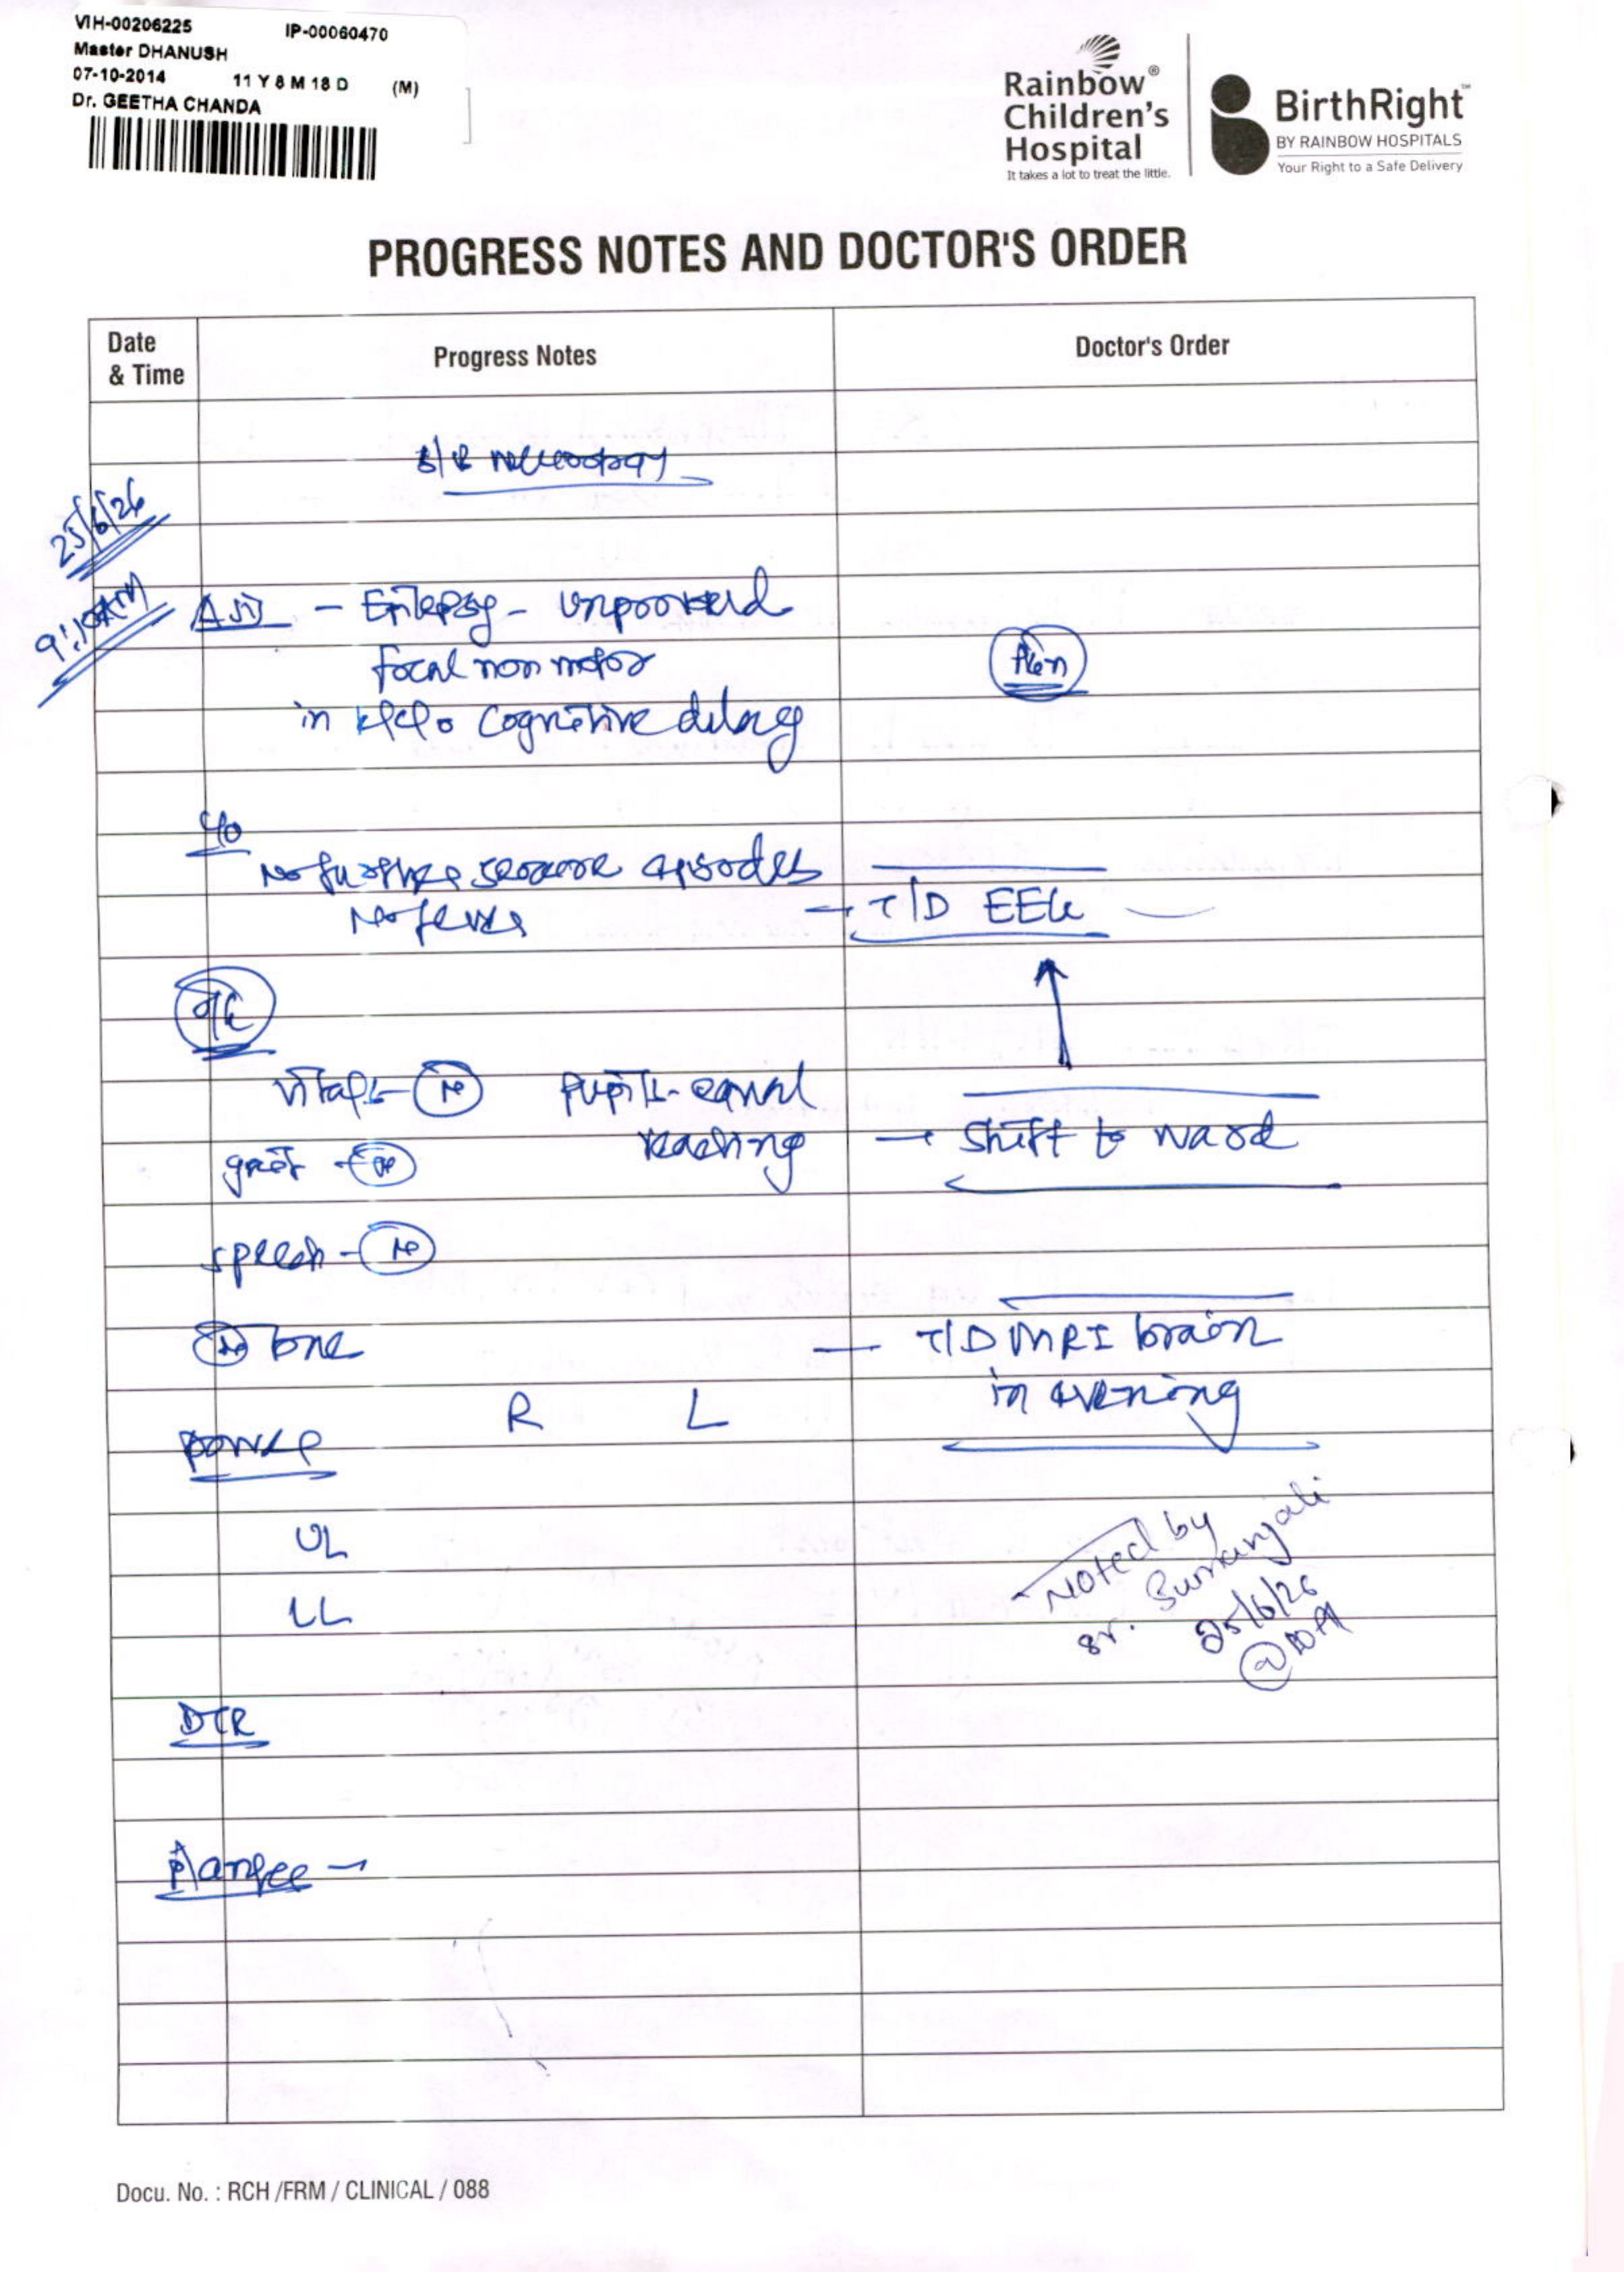 VIH-00206225 IP-00060470
Master DHANUSH
07-10-2014 11 Y 8 M 18 D (M)
Dr. GEETHA CHANDA
Rainbow®
Children's
Hospital
It takes a lot to treat the little.
BirthRight™
BY RAINBOW HOSPITALS
Your Right to a Safe Delivery
PROGRESS NOTES AND DOCTOR'S ORDER
Date
& Time
Progress Notes
Doctor's Order
25/6/26
- Epilepsy - unprovoked
focal non motor
Plan
in cognitive delay
c/o
No further seizure episodes
No fever
→ T/D EEG
o/e
vitals - N pupils - equal
reacting
→ Shift to ward
gait - N
speech - N
N tone
— T/D MRI brain
in evening
R L
power
UL
LL
Noted by
Sr. Sumanjali
25/6/26
DTR
Plantar -
Docu. No. : RCH /FRM / CLINICAL / 088